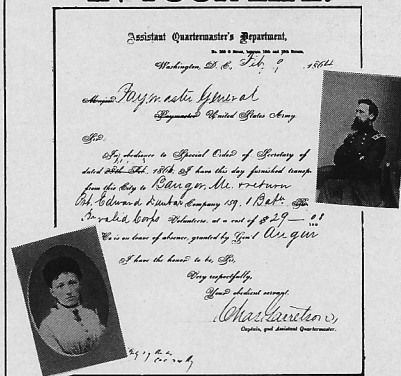 Assistant Quartermaster's Department,
No. 230 G Street, between 18th and 19th Streets,
Washington, D. C., Feb 9 1864
Paymaster General
Paymaster United States Army.
Sir:
In obedience to Special Order of Secretary
dated Feb. 1864, I have this day furnished transp
from this City to Bangor, Me. return
Pt. Edward Company 159, 1 Batn
Invalid Corps Volunteers, at a cost of $29 — 08
100
He is on leave of absence, granted by Gen'l Augur
I have the honor to be, Sir,
Very respectfully,
Your obedient servant,
Chas. Garretson,
Captain, and Assistant Quartermaster.